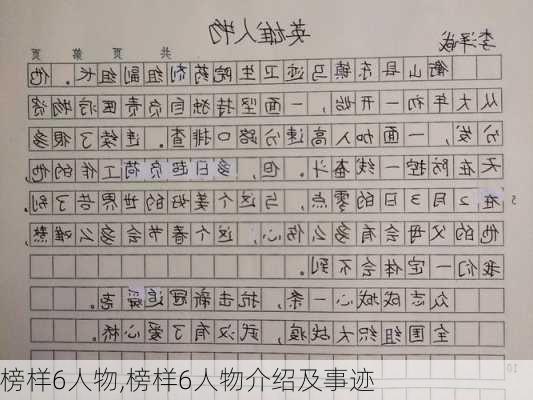 共 页 第 页
英雄人物
衡山县东湖镇马迹卫生院药剂组副组长。他
从大年初一开始，一面坚持独自负责医疗物资
分发，一面加入高速公路口排查。连续了很多
天在防控一线奋斗。但，多日超负荷工作的他
在2月3日的零点，与这个美好的世界告了别
他的父母会有多么伤心，这个春节会多么难熬
我们一定体会不到。
众志成城心一条，抗击新冠
全国组织大战疫，武汉有了爱心桥。
榜样6人物,榜样6人物介绍及事迹